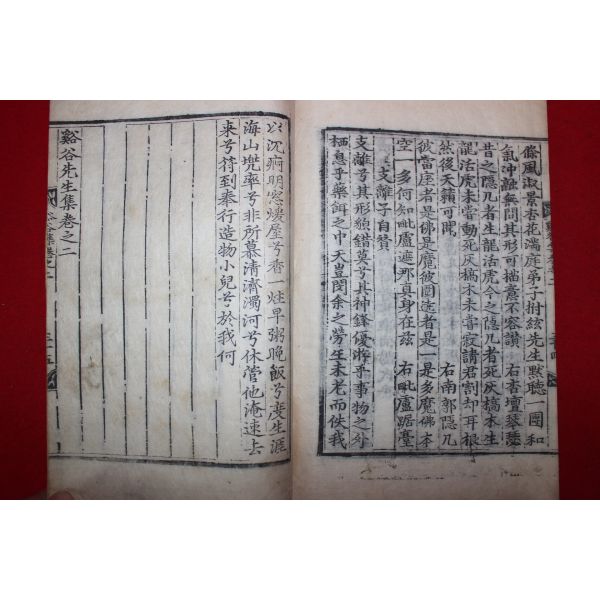 條風淑景杏花滿庭弟子拊絃先生默聽一團和
氣沖融無間其形可描意不容讚　右杏壇琴瑟
昔之隱几者生龍活虎今之隱几者死灰槁木生
龍活虎未嘗動死灰槁木未嘗寂請君割却耳根
然後天籟可聞　右南郭隱几
彼當座者是佛是魔彼圍遶者是一是多魔佛本
空一多何知毗盧遮那眞身在玆　右毗盧踞臺
支離子自贊
支離乎其形顔錯莫乎其神鋒優游乎事物之外
栖息乎藥餌之中天豈閔余之勞生未老而佚我
以沉痾明窓煖屋兮香一炷早粥晚飯兮度生涯
海山兜率兮非所慕淸濟濁河兮休管他淹速去
來兮符到奉行造物小兒兮於我何
谿谷先生集卷之二